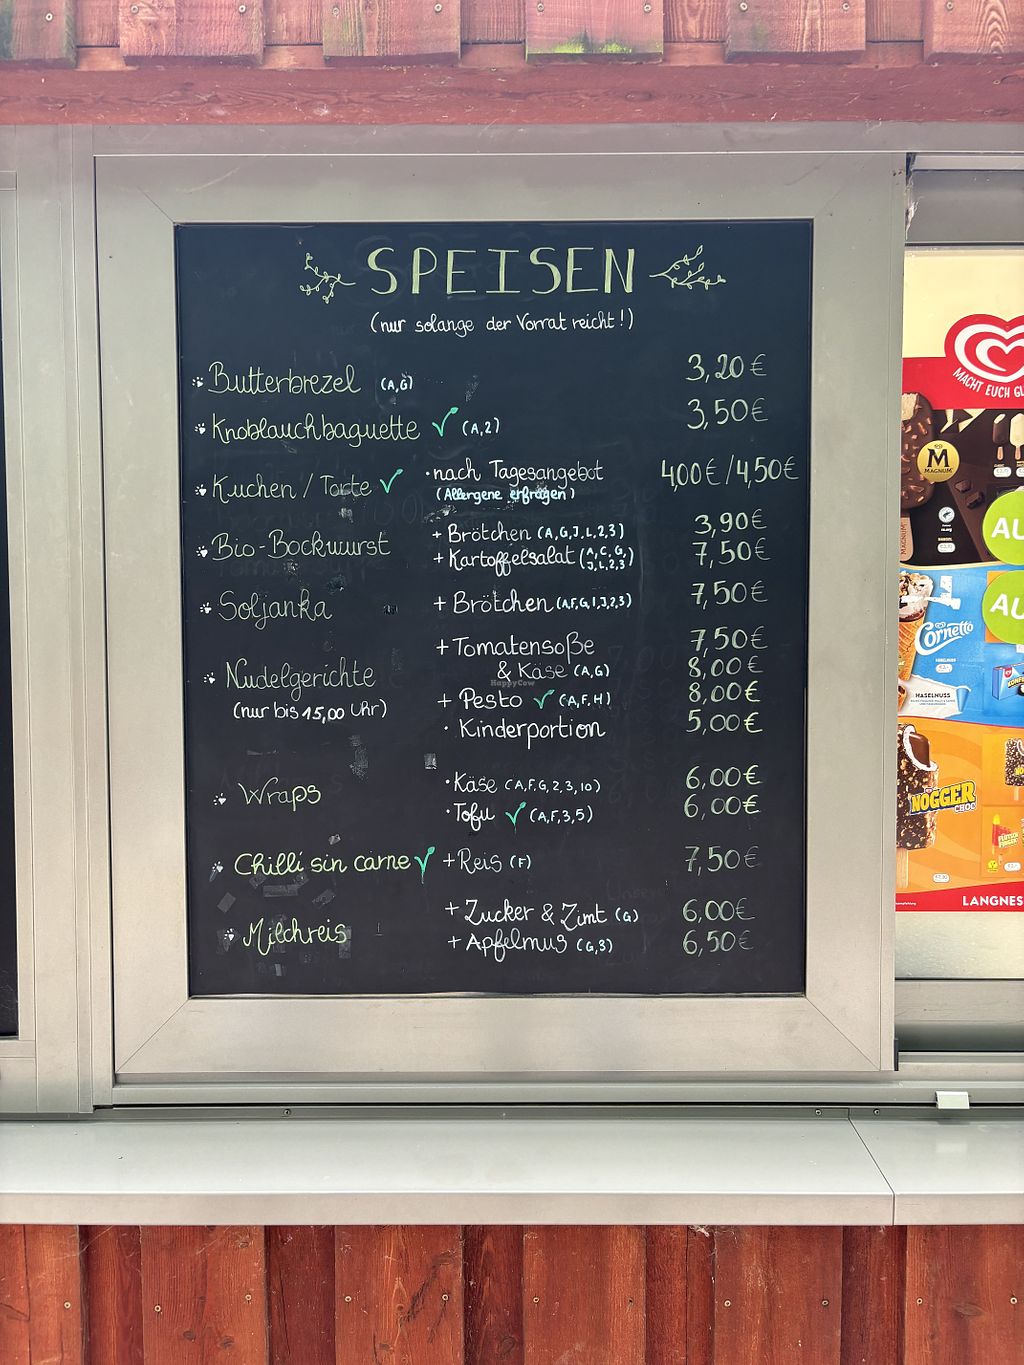 SPEISEN
(nur solange der Vorrat reicht!)
Butterbrezel (A,G) 3,20€
Knoblauchbaguette (A,2) 3,50€
Kuchen / Torte · nach Tagesangebot 4,00€/4,50€
(Allergene erfragen)
Bio-Bockwurst + Brötchen (A,G,J,L,2,3) 3,90€
+ Kartoffelsalat (A,C,G, J,L,2,3) 7,50€
Soljanka + Brötchen (A,F,G,I,J,2,3) 7,50€
Nudelgerichte + Tomatensoße 7,50€
& Käse (A,G) 8,00€
(nur bis 15,00 Uhr) + Pesto (A,F,H) 8,00€
· Kinderportion 5,00€
Wraps · Käse (A,F,G,2,3,10) 6,00€
· Tofu (A,F,3,5) 6,00€
Chilli sin carne + Reis (F) 7,50€
Milchreis + Zucker & Zimt (G) 6,00€
+ Apfelmus (G,3) 6,50€
HappyCow
MACHT EUCH
M
MAGNUM
MAGNUM
AU
AU
Cornetto
HASELNUSS
NOGGER
CHOC
LANGNES